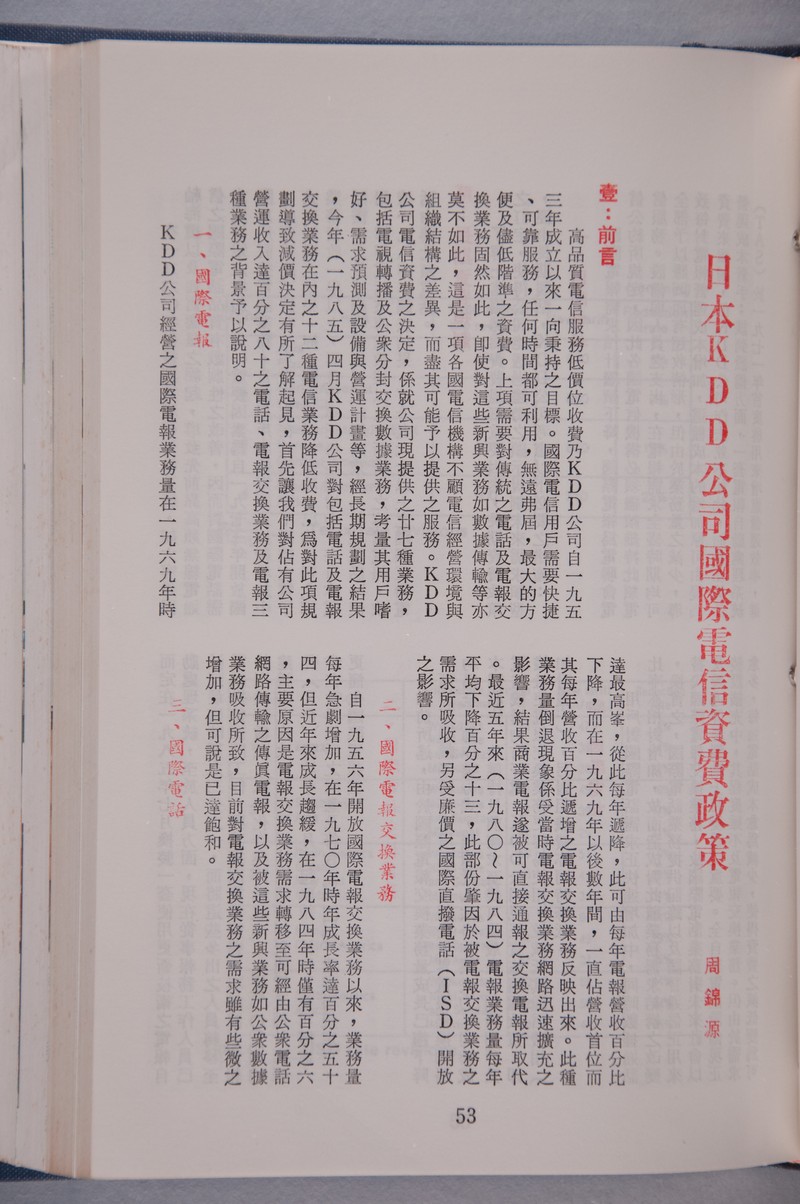 日本KDD公司國際電信資費政策
周錦源
壹：前言
高品質電信服務低價位收費乃KDD公司自一九五
三年成立以來一向秉持之目標。國際電信用戶需要快捷
、可靠服務，任何時間都可利用，無遠弗屆，最大的方
便及儘低階準之資費。上項需要對傳統之電話及電報交
換業務固然如此，卽使對這些新興業務如數據傳輸等亦
莫不如此，這是一項各國電信機構不顧電信經營環境與
組織結構之差異，而盡其可能予以提供之服務。KDD
公司電信資費之決定，係就公司現提供之廿七種業務，
包括電視轉播及公衆分封交換數據業務，考量其用戶嗜
好、需求預測及設備與營運計畫等，經長期規劃之結果
，今年（一九八五）四月KDD公司對包括電話及電報
交換業務在內之十二種電信業務降低收費，爲對此項規
劃導致減價決定有所了解起見，首先讓我們對佔有公司
營運收入達百分之八十之電話、電報交換業務及電報三
種業務之背景予以說明。
一、國際電報
KDD公司經營之國際電報業務量在一九六九年時
達最高峯，從此每年遞降，此可由每年電報營收百分比
下降，而在一九六九年以後數年間，一直佔營收首位而
其每年營收百分比遞增之電報交換業務反映出來。此種
業務量倒退現象係受當時電報交換業務網路迅速擴充之
影響，結果商業電報遂被可直接通報之交換電報所取代
。最近五年來（一九八〇～一九八四）電報業務量每年
平均下降百分之十三，此部份肇因於被電報交換業務之
需求所吸收，另受廉價之國際直撥電話（ISD）開放
之影響。
二、國際電報交換業務
自一九五六年開放國際電報交換業務以來，業務量
每年急劇增加，在一九七〇年時年成長率達百分之五十
四，但近年來成長趨緩，在一九八四年時僅有百分之六
，主要原因是電報交換業務需求轉移至可經由公衆電話
網路傳輸之傳眞電報，以及被這些新興業務如公衆數據
業務吸收所致，目前對電報交換業務之需求雖有些微之
增加，但可說是已達飽和。
三、國際電話
53